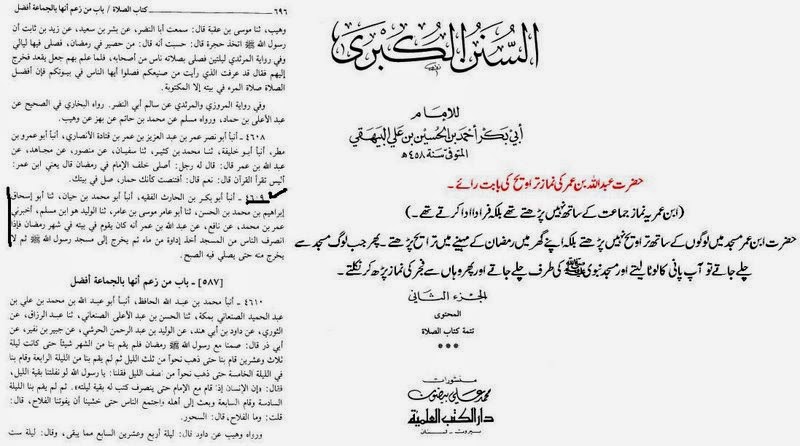 ٦٩٦
كتاب الصلاة / باب من زعم أنها بالجماعة أفضل
وهيب، ثنا موسى بن عقبة قال: سمعت أبا النضر، عن بشر بن سعيد، عن زيد بن ثابت أن
رسول الله ﷺ اتخذ حجرة قال: حسبت أنه قال: من حصير في رمضان، فصلى فيها ليالي
وفي رواية المرثدي ليلتين فصلى بصلاته ناس من أصحابه، فلما علم بهم جعل يقعد فخرج
إليهم فقال قد عرفت الذي رأيت من صنيعكم فصلوا أيها الناس في بيوتكم فإن أفضل
الصلاة صلاة المرء في بيته إلا المكتوبة.
وفي رواية المروزي والمرثدي عن سالم أبي النضر. رواه البخاري في الصحيح عن
عبد الأعلى بن حماد، ورواه مسلم عن محمد بن حاتم عن بهز عن وهيب.
٤٦٠٨ - أنبأ أبو نصر عمر بن عبد العزيز بن عمر بن قتادة الأنصاري، أنبأ أبو عمرو بن
مطر، أنبأ أبو خليفة، ثنا محمد بن كثير، ثنا سفيان، عن منصور، عن مجاهد، عن
عبد الله بن عمر قال: قال له رجل: أصلي خلف الإمام في رمضان قال: يعني ابن عمر:
أليس تقرأ القرآن قال: نعم قال: أفتنصت كأنك حمار، صل في بيتك.
٤٦٠٩ - أنبأ أبو بكر بن الحارث الفقيه، أنبأ أبو محمد بن حيان، ثنا أبو إسحاق
إبراهيم بن محمد بن الحسن، ثنا أبو عامر موسى بن عامر، ثنا الوليد هو ابن مسلم، أخبرني
عمر بن محمد، عن نافع، عن عبد الله بن عمر أنه كان يقوم في بيته في شهر رمضان فإذا
انصرف الناس من المسجد أخذ إداوة من ماء ثم يخرج إلى مسجد رسول الله ﷺ ثم لا
يخرج منه حتى يصلي فيه الصبح.
[٥٨٧] - باب من زعم أنها بالجماعة أفضل
٤٦١٠ - أنبأ محمد بن عبد الله الحافظ، أنبأ أبو عبد الله محمد بن علي بن
عبد الحميد الصنعاني بمكة، ثنا الحسن بن عبد الأعلى الصنعاني، ثنا عبد الرزاق، عن
الثوري، عن داود بن أبي هند، عن الوليد بن عبد الرحمن الجرشي، عن جبير بن نفير، عن
أبي ذر قال: صمنا مع رسول الله ﷺ رمضان فلم يقم بنا من الشهر شيئاً حتى كانت ليلة
ثلاث وعشرين قام بنا حتى ذهب نحواً من ثلث الليل ثم لم يقم بنا من الليلة الرابعة وقام بنا
في الليلة الخامسة حتى ذهب نحواً من نصف الليل فقلنا: يا رسول الله لو نفلتنا بقية الليل،
فقال: «إن الإنسان إذا قام مع الإمام حتى ينصرف كتب له بقية ليلته». ثم لم يقم بنا الليلة
السادسة وقام السابعة وبعث إلى أهله واجتمع الناس حتى خشينا أن يفوتنا الفلاح، قال:
قلت: وما الفلاح، قال: السحور.
ورواه وهيب عن داود قال: ليلة أربع وعشرين السابع مما يبقى، وقال: ليلة ست
السنن الكبرى
للإمام
أبي بكر أحمد بن الحسين بن علي البيهقي
المتوفى سنة ٤٥٨ هـ
حضرت عبداللہ بن عمر کی نماز تراویح کی بابت رائے۔
(ابن عمر یہ نماز جماعت کے ساتھ نہیں پڑھتے تھے بلکہ فرادا ادا کرتے تھے۔)
حضرت ابن عمر مسجد میں لوگوں کے ساتھ تراویح نہیں پڑھتے بلکہ اپنے گھر میں رمضان کے مہینے میں تراویح پڑھتے۔ پھر جب لوگ مسجد سے
چلے جاتے تو آپ پانی کا لوٹا لیتے اور مسجد نبوی ﷺ کی طرف چلے جاتے اور پھر وہاں سے فجر کی نماز پڑھ کر نکلتے۔
الجزء الثاني
المحتوى
تتمة كتاب الصلاة
***
منشورات
محمد علي بيضون
دار الكتب العلمية
بيروت - لبنان